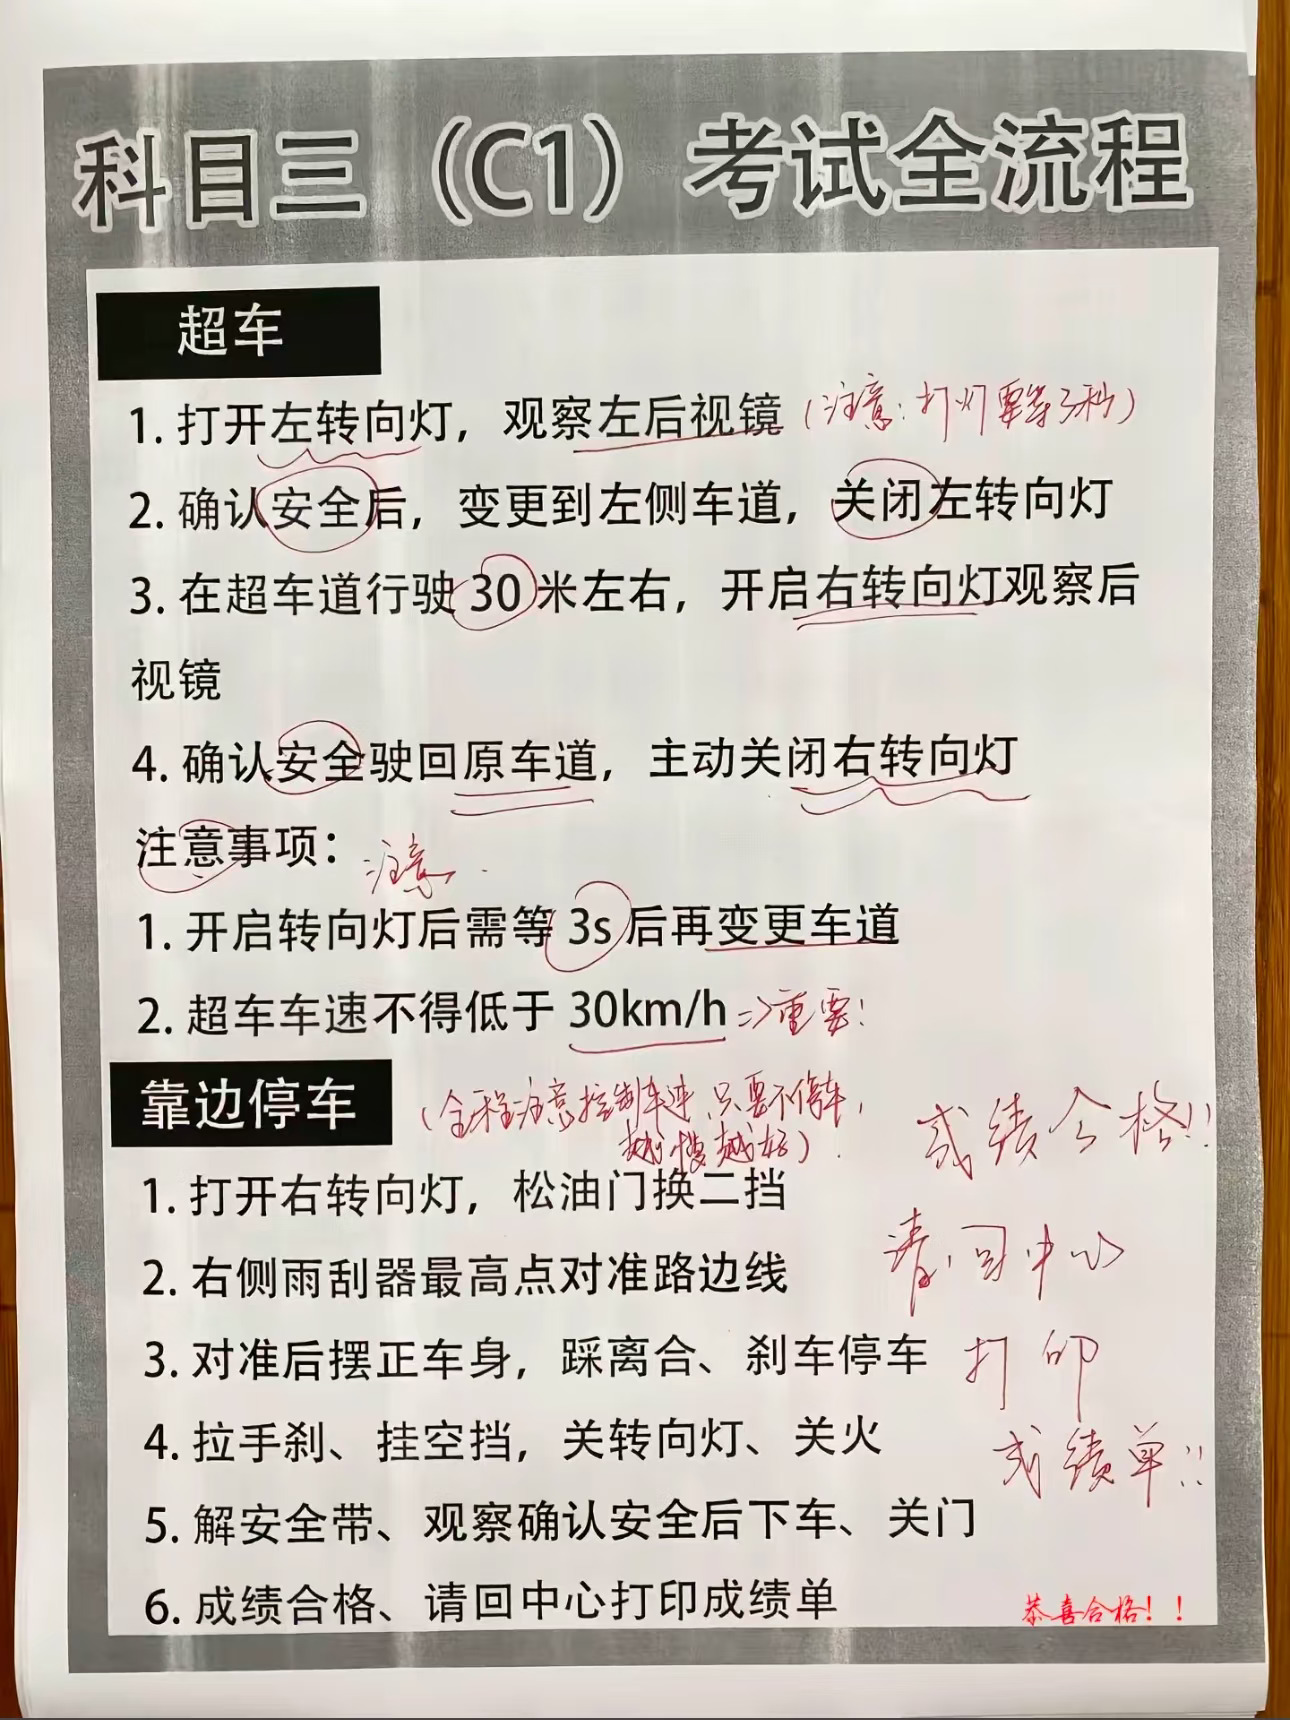 科目三（C1）考试全流程
超车
1. 打开左转向灯，观察左后视镜（注意：打灯要等3秒）
2. 确认安全后，变更到左侧车道，关闭左转向灯
3. 在超车道行驶 30 米左右，开启右转向灯观察后
视镜
4. 确认安全驶回原车道，主动关闭右转向灯
注意事项： 注意
1. 开启转向灯后需等 3s 后再变更车道
2. 超车车速不得低于 30km/h =>重要！
靠边停车 （全程注意控制车速，只要不停车，
越慢越好）
成绩合格！！
1. 打开右转向灯，松油门换二挡
请回中心
2. 右侧雨刮器最高点对准路边线
3. 对准后摆正车身，踩离合、刹车停车 打印
4. 拉手刹、挂空挡，关转向灯、关火 成绩单！！
5. 解安全带、观察确认安全后下车、关门
6. 成绩合格、请回中心打印成绩单
恭喜合格！！